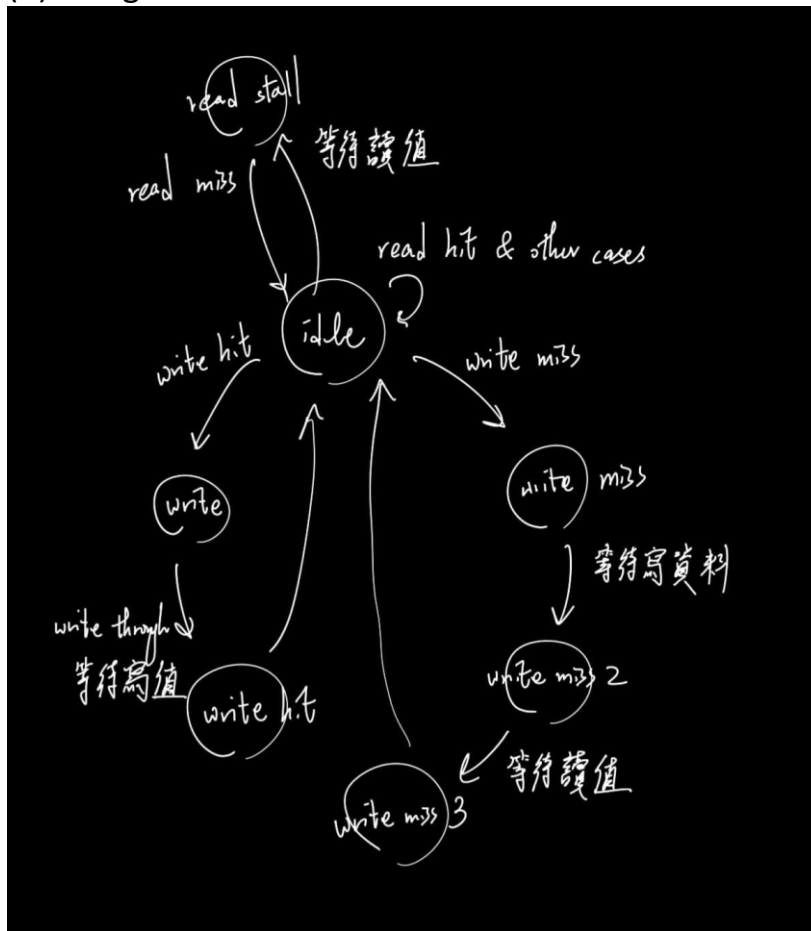 read stall
等待讀值
read miss
read hit & other cases
idle
write hit
write miss
write
write miss
等待寫資料
write through
等待寫值
write miss 2
write hit
等待讀值
write miss 3